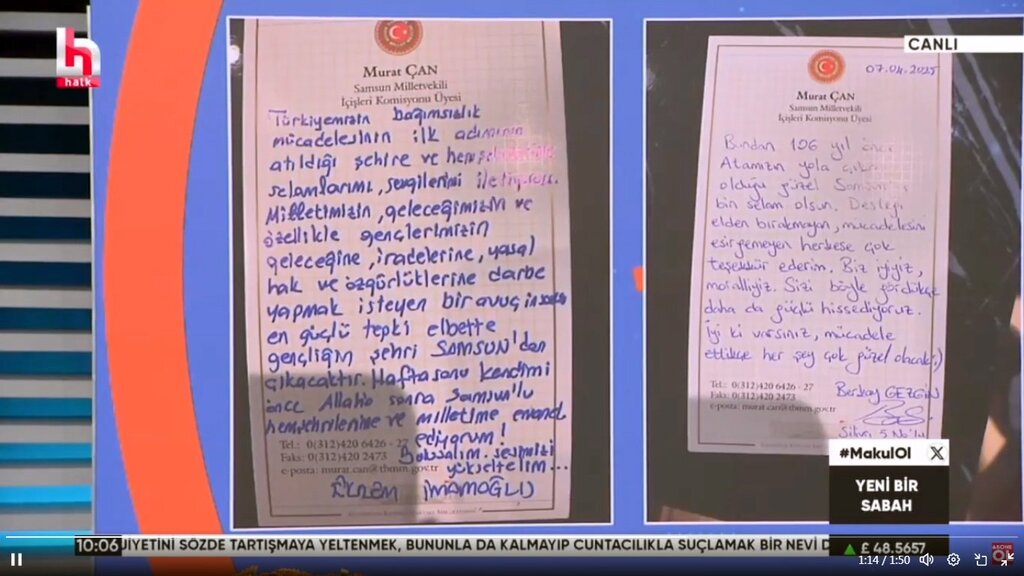 h
halk
CANLI
Murat ÇAN
Samsun Milletvekili
İçişleri Komisyonu Üyesi
Türkiyemizin bağımsızlık
mücadelesinin ilk adımının
atıldığı şehire ve
selamlarımı, sevgilerimi iletiyorum.
Milletimizin, geleceğimizin ve
özellikle gençlerimizin
geleceğine, iradelerine, yasal
hak ve özgürlüklerine darbe
yapmak isteyen bir avuç insana
en güçlü tepki elbette
gençliğin şehri SAMSUN'dan
çıkacaktır. Haftasonu kendimi
önce Allah'a sonra Samsun'lu
hemşehrilerime ve milletime emanet
ediyorum!
sesimizi
yükseltelim...
Tel.: 0(312)420 6426 - 27
Faks: 0(312)420 2473
e-posta: murat.can@tbmm.gov.tr
Ekrem İMAMOĞLU
07.04.2025
Murat ÇAN
Samsun Milletvekili
İçişleri Komisyonu Üyesi
Bundan 106 yıl önce
Atamızın yola
olduğu güzel
bin selam olsun. Desteği
elden bırakmayan, mücadelesini
esirgemeyen herkese çok
teşekkür ederim. Biz iyiyiz,
moralliyiz. Sizi böyle gördükçe
daha da güçlü hissediyoruz.
İyi ki varsınız, mücadele
ettikçe her şey çok güzel olacak :)
Tel.: 0(312)420 6426 - 27
Faks: 0(312)420 2473
e-posta: murat.can@tbmm.gov.tr
Berkay GEZGİN
Silivri 5 No'lu
#MakulOl X
YENİ BİR
SABAH
10:06 JİYETİNİ SÖZDE TARTIŞMAYA YELTENMEK, BUNUNLA DA KALMAYIP CUNTACILIKLA SUÇLAMAK BİR NEVİ D
£ 48.5657
1:14 / 1:50
ABONE
OL